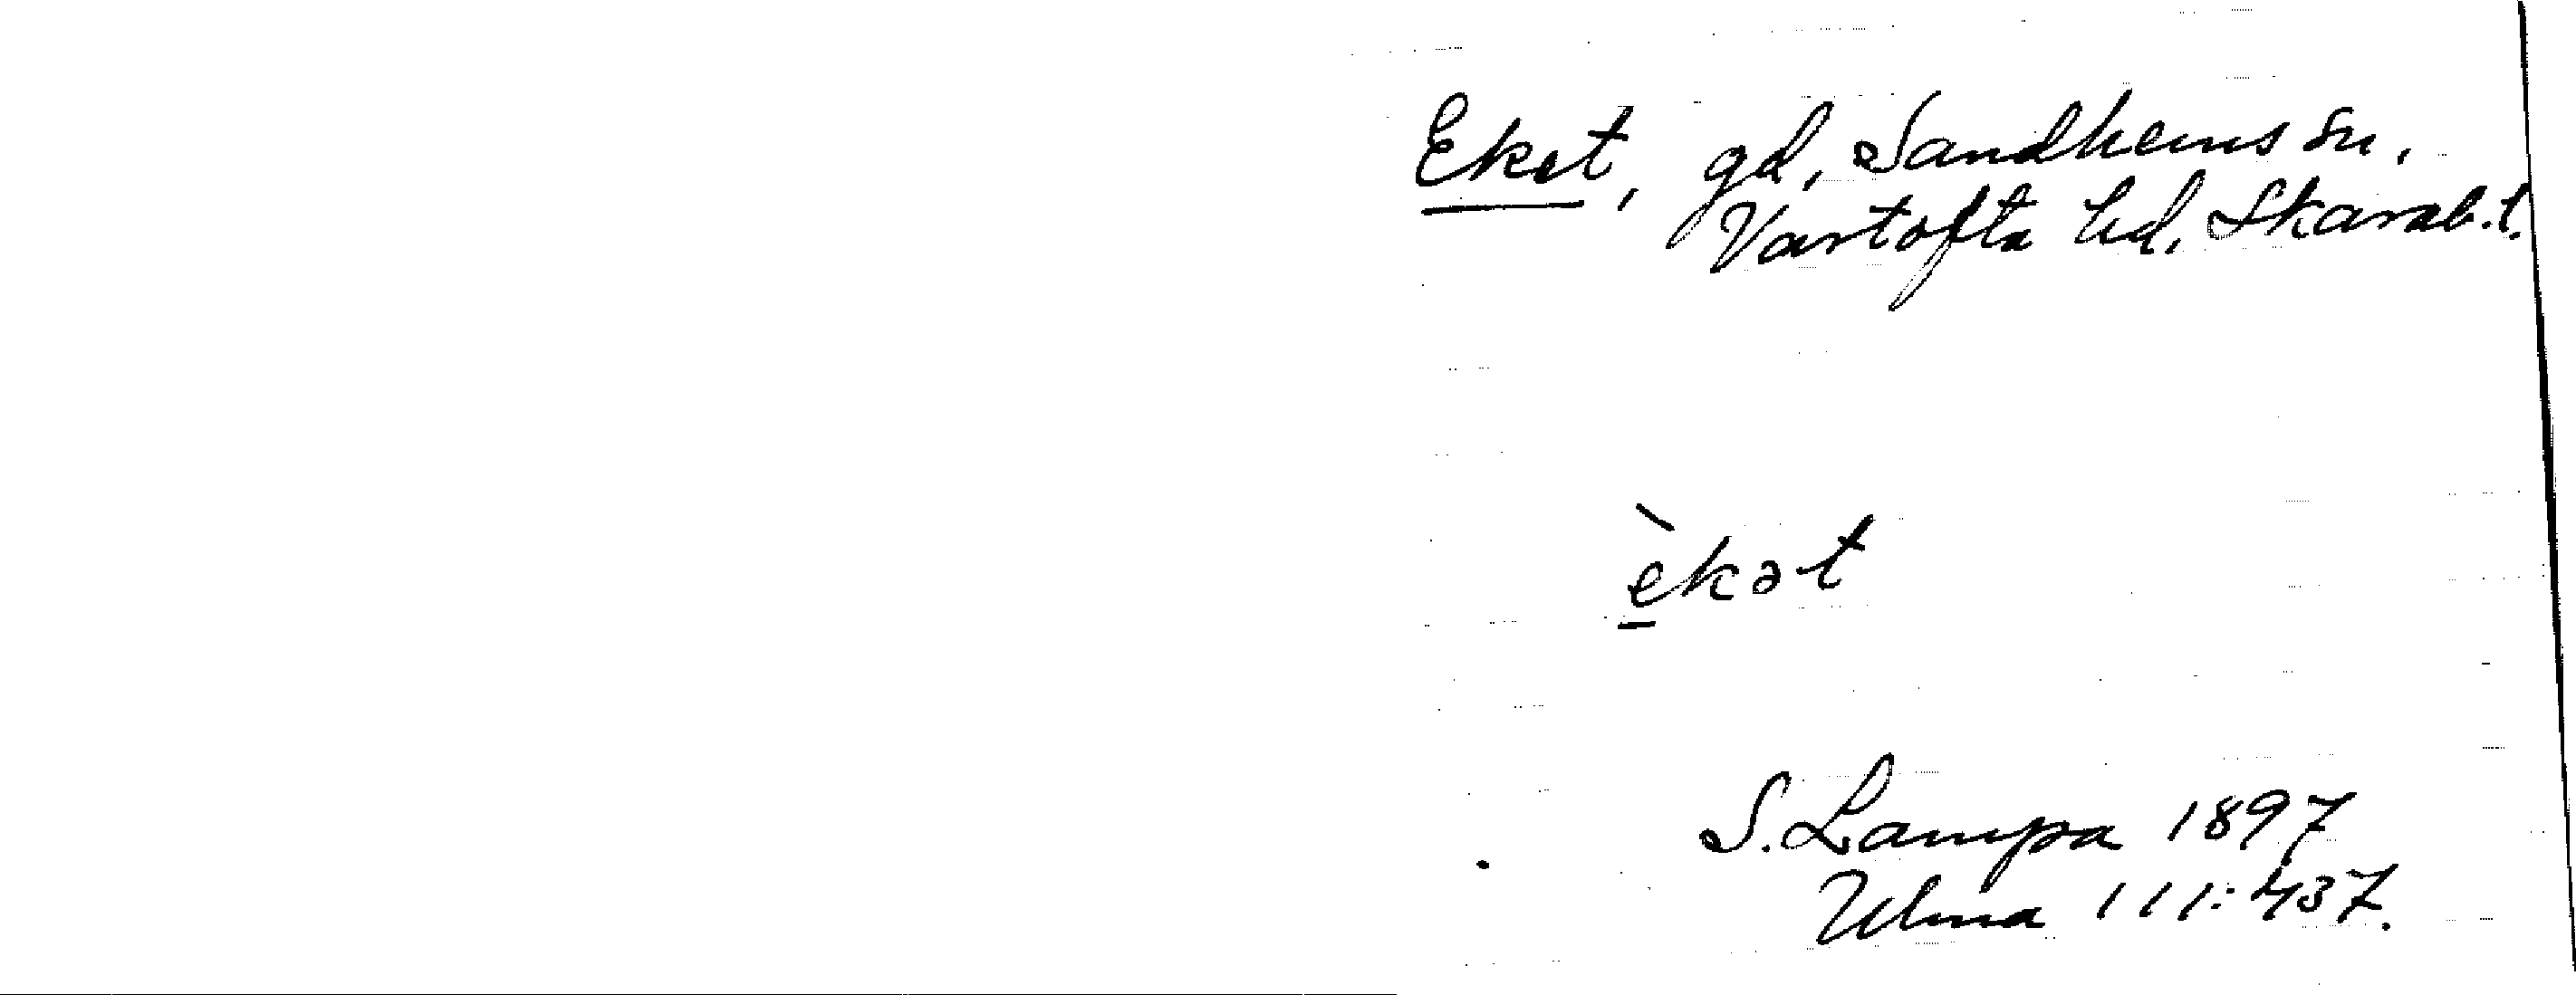 Eket, gd, Sandhems sn,
Vartofta hd, Skarab.l.
èkət
S. Lampa 1897
Ulma 111:437.